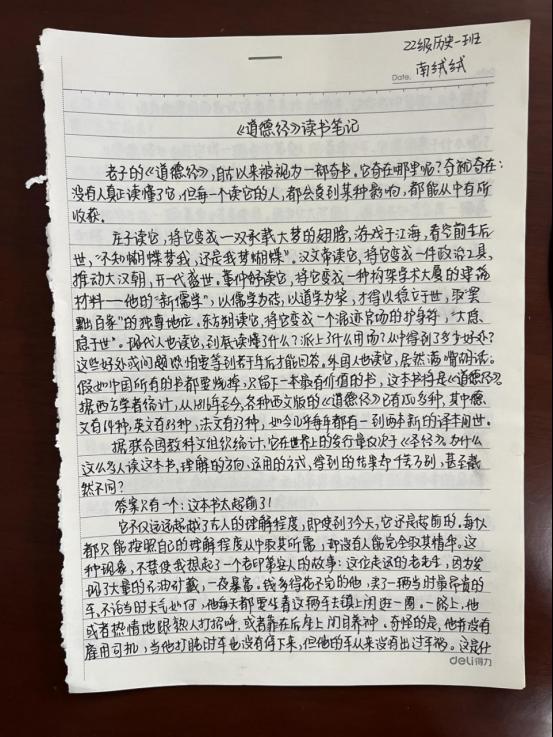 22级历史一班
南绒绒
Date.
《道德经》读书笔记
老子的《道德经》,自古以来被视为一部奇书。它奇在哪里呢?奇就奇在:
没有人真正读懂了它,但每一个读它的人,都会受到某种影响,都能从中有所
收获。
庄子读它,将它变成一双承载大梦的翅膀,游戏于江海,看空前生后
世,“不知蝴蝶梦我,还是我梦蝴蝶”。汉文帝读它,将它变成一件政治工具,
推动大汉朝,开一代盛世。董仲舒读它,将它变成一种构架学术大厦的建筑
材料——他的“新儒学”,以儒学为砖,以道学为浆,才得以稳立于世,取“罢
黜百家”的独尊地位。东方朔读它,将它变成一个混迹官场的护身符,“大隐
隐于世”。现代人也读它,到底读懂了什么?派上了什么用场?从中得到了多少好处?
这些好处或问题恐怕要等到若干年后才能回答。外国人也读它,居然满嘴胡话。
假如中国所有的书都要烧掉,只留下一本最有价值的书,这本书将是《道德经》。
据西方学者统计,从1816年至今,各种西文版的《道德经》已有250多种,其中德
文有64种,英文有83种,法文有33种,如今几乎每年都有一到两本新的译本问世。
据联合国教科文组织统计,它在世界上的发行量仅次于《圣经》。为什么
这么多人读这本书,理解的方向、运用的方式、得到的结果却千差万别,甚至截
然不同?
答案只有一个:这本书太超前了!
它不仅远远超越了古人的理解程度,即使到了今天,它还是超前的。每个人
都只能按照自己的理解程度从中取其所需,却没有人能完全取其精华。这
种现象,不禁使我想起了一个老印第安人的故事:这位走运的老先生,因为发
现了大量的石油矿藏,一夜暴富。钱多得花不完的他,买了一辆当时最昂贵的
车,不论当时天气如何,他每天都要坐着这辆车去镇上闲逛一圈。一路上,他
或者热情地跟熟人打招呼,或者靠在后座上闭目养神。奇怪的是,他并没有
雇用司机,当他打盹时车也没有停下来,但他的车从来没有出过车祸。这是什
deli得力